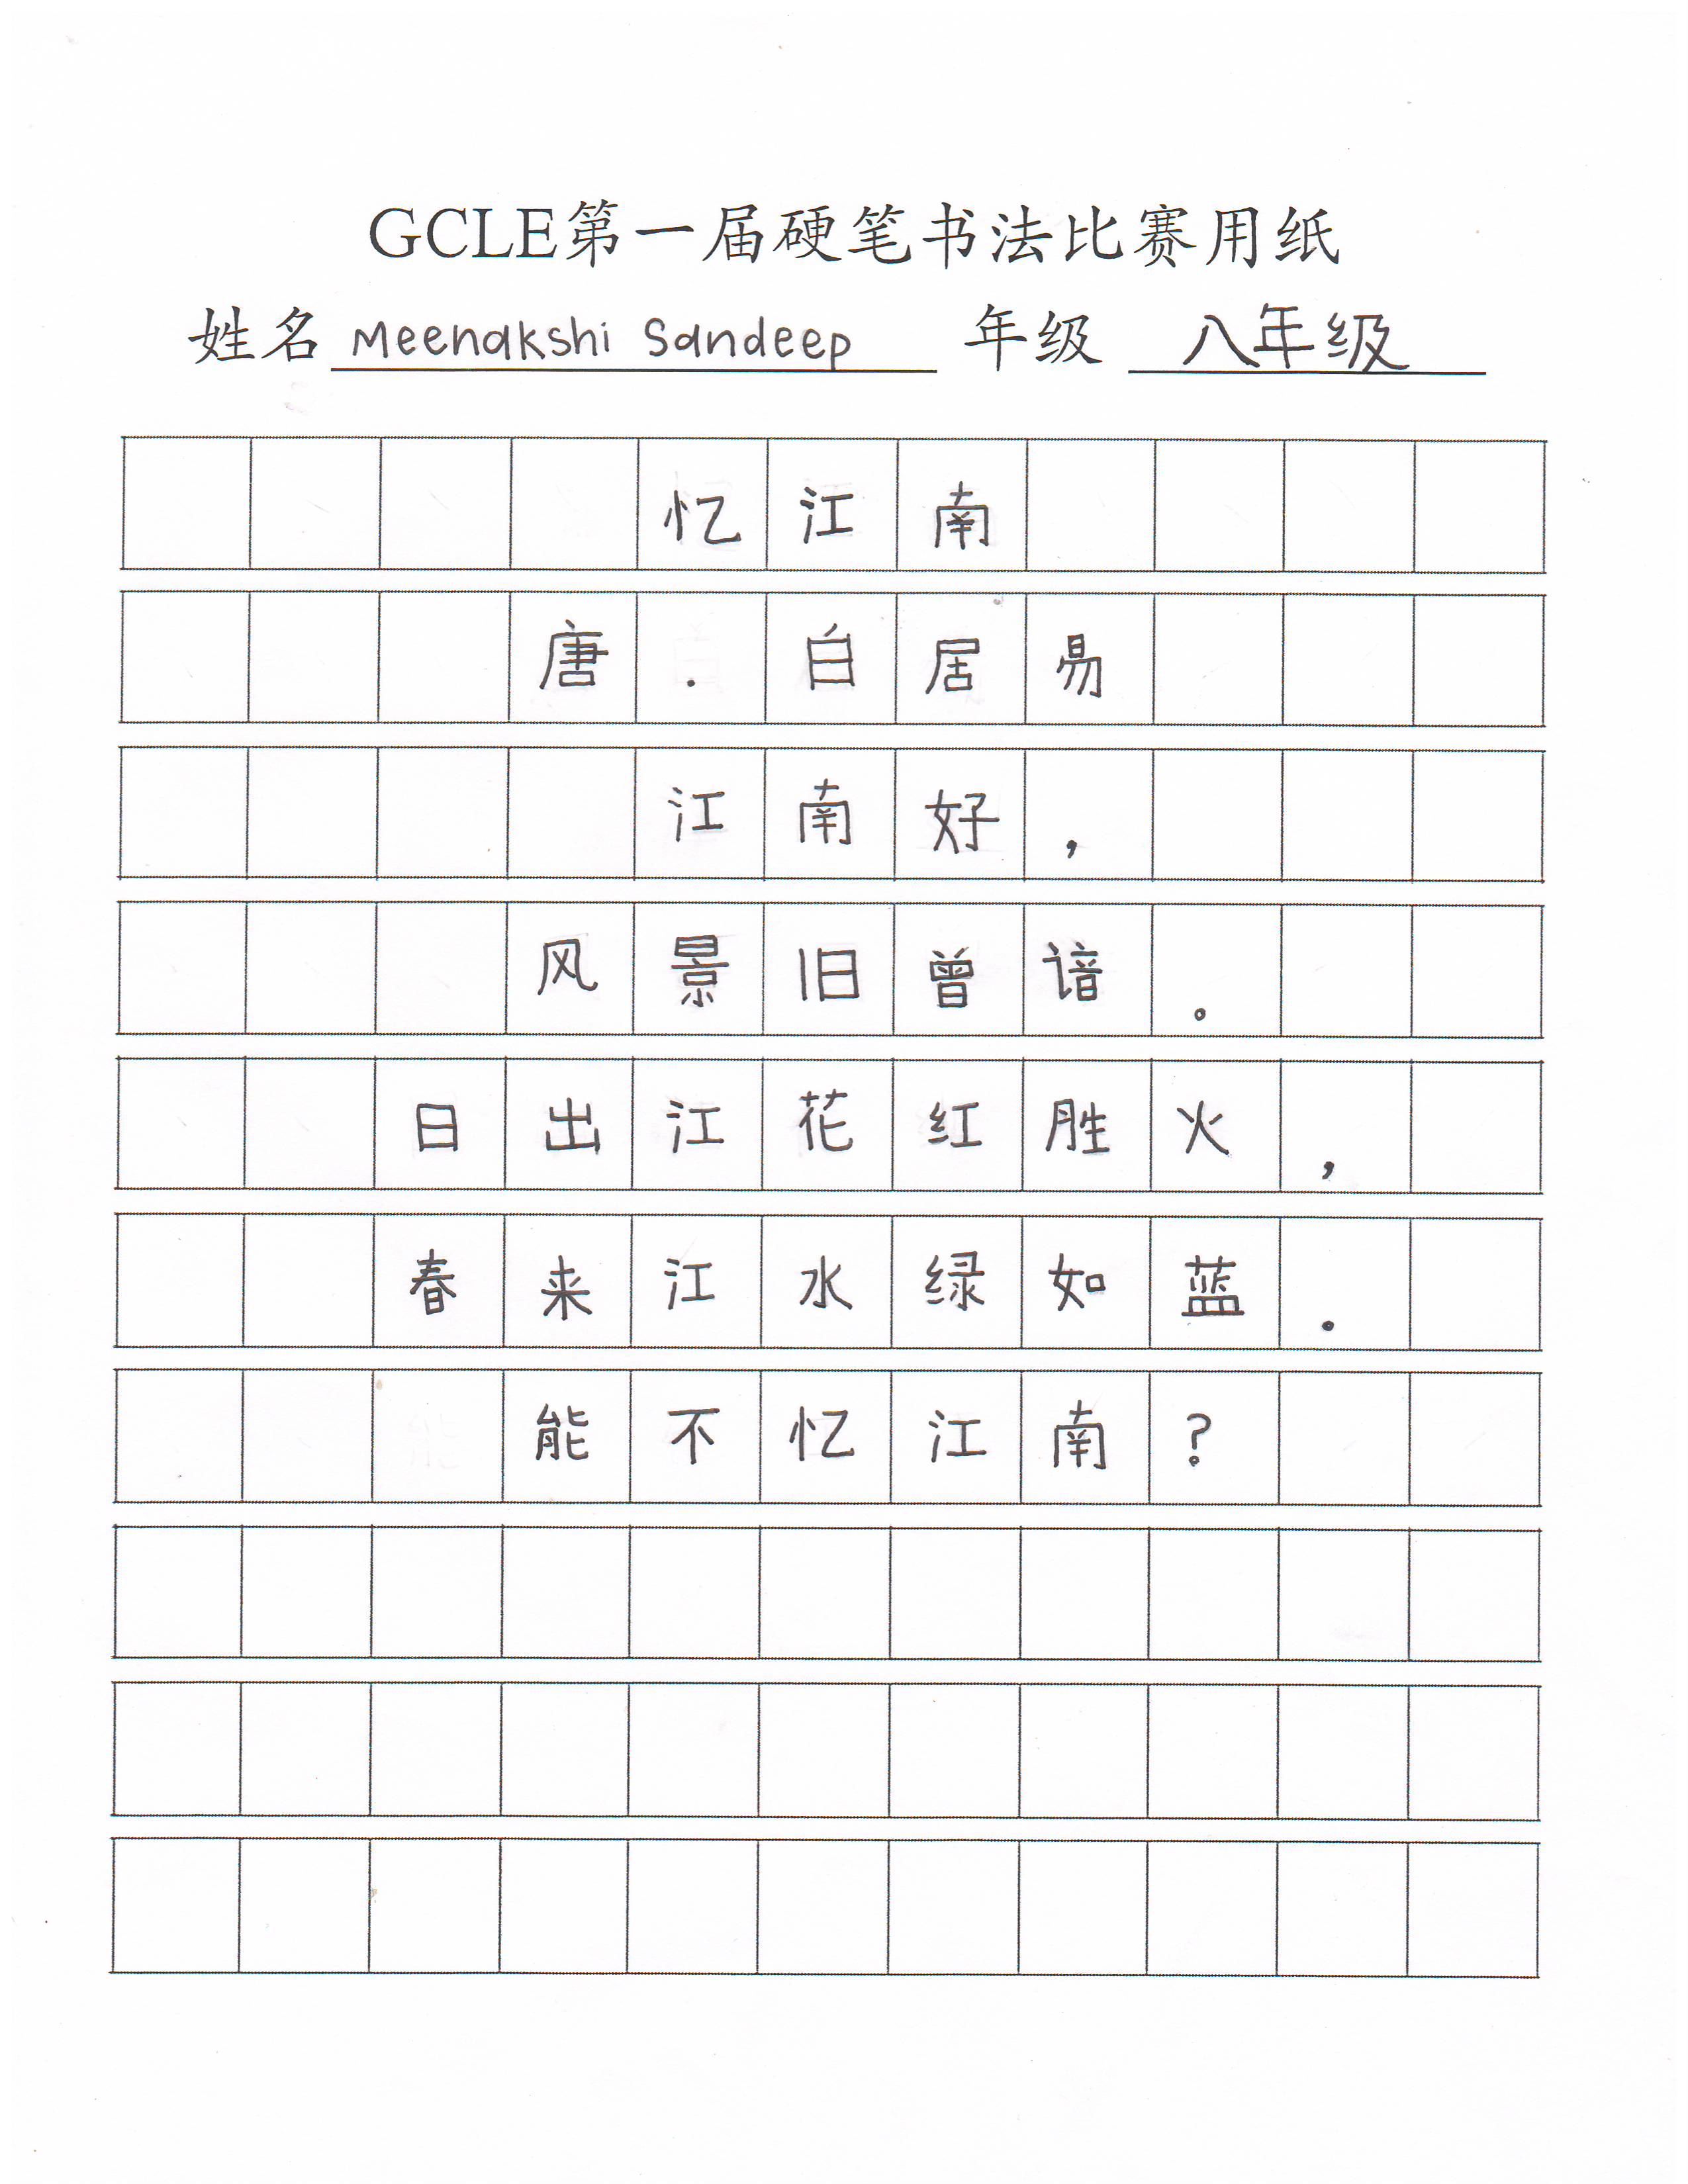 GCLE第一届硬笔书法比赛用纸
姓名 Meenakshi Sandeep 年级 八年级
忆江南
唐.白居易
江南好，
风景旧曾谙。
日出江花红胜火，
春来江水绿如蓝.
能不忆江南？